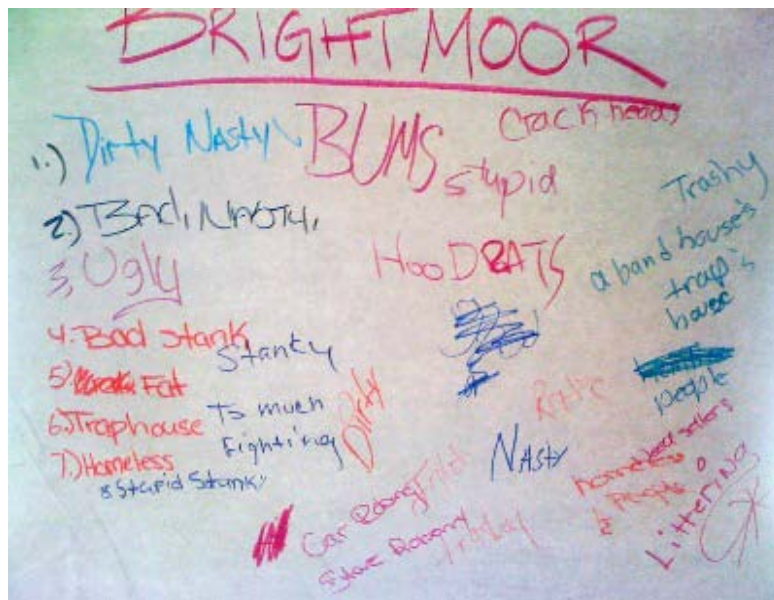 BRIGHTMOOR
1.) Dirty Nasty
BUMS
Crack heads
stupid
2) Bad, NASTY,
Trashy
3, Ugly
HOODRATS
a band house's
trap's
house
4. Bad stank
Stanky
5) Fat
people
6.) Traphouse
To much
fighting
Dirty
7.) Homeless
8 Stupid Stank
Nasty
homeless
People
weed sellers
LitteriNG
Car Robbing
Store Robbery